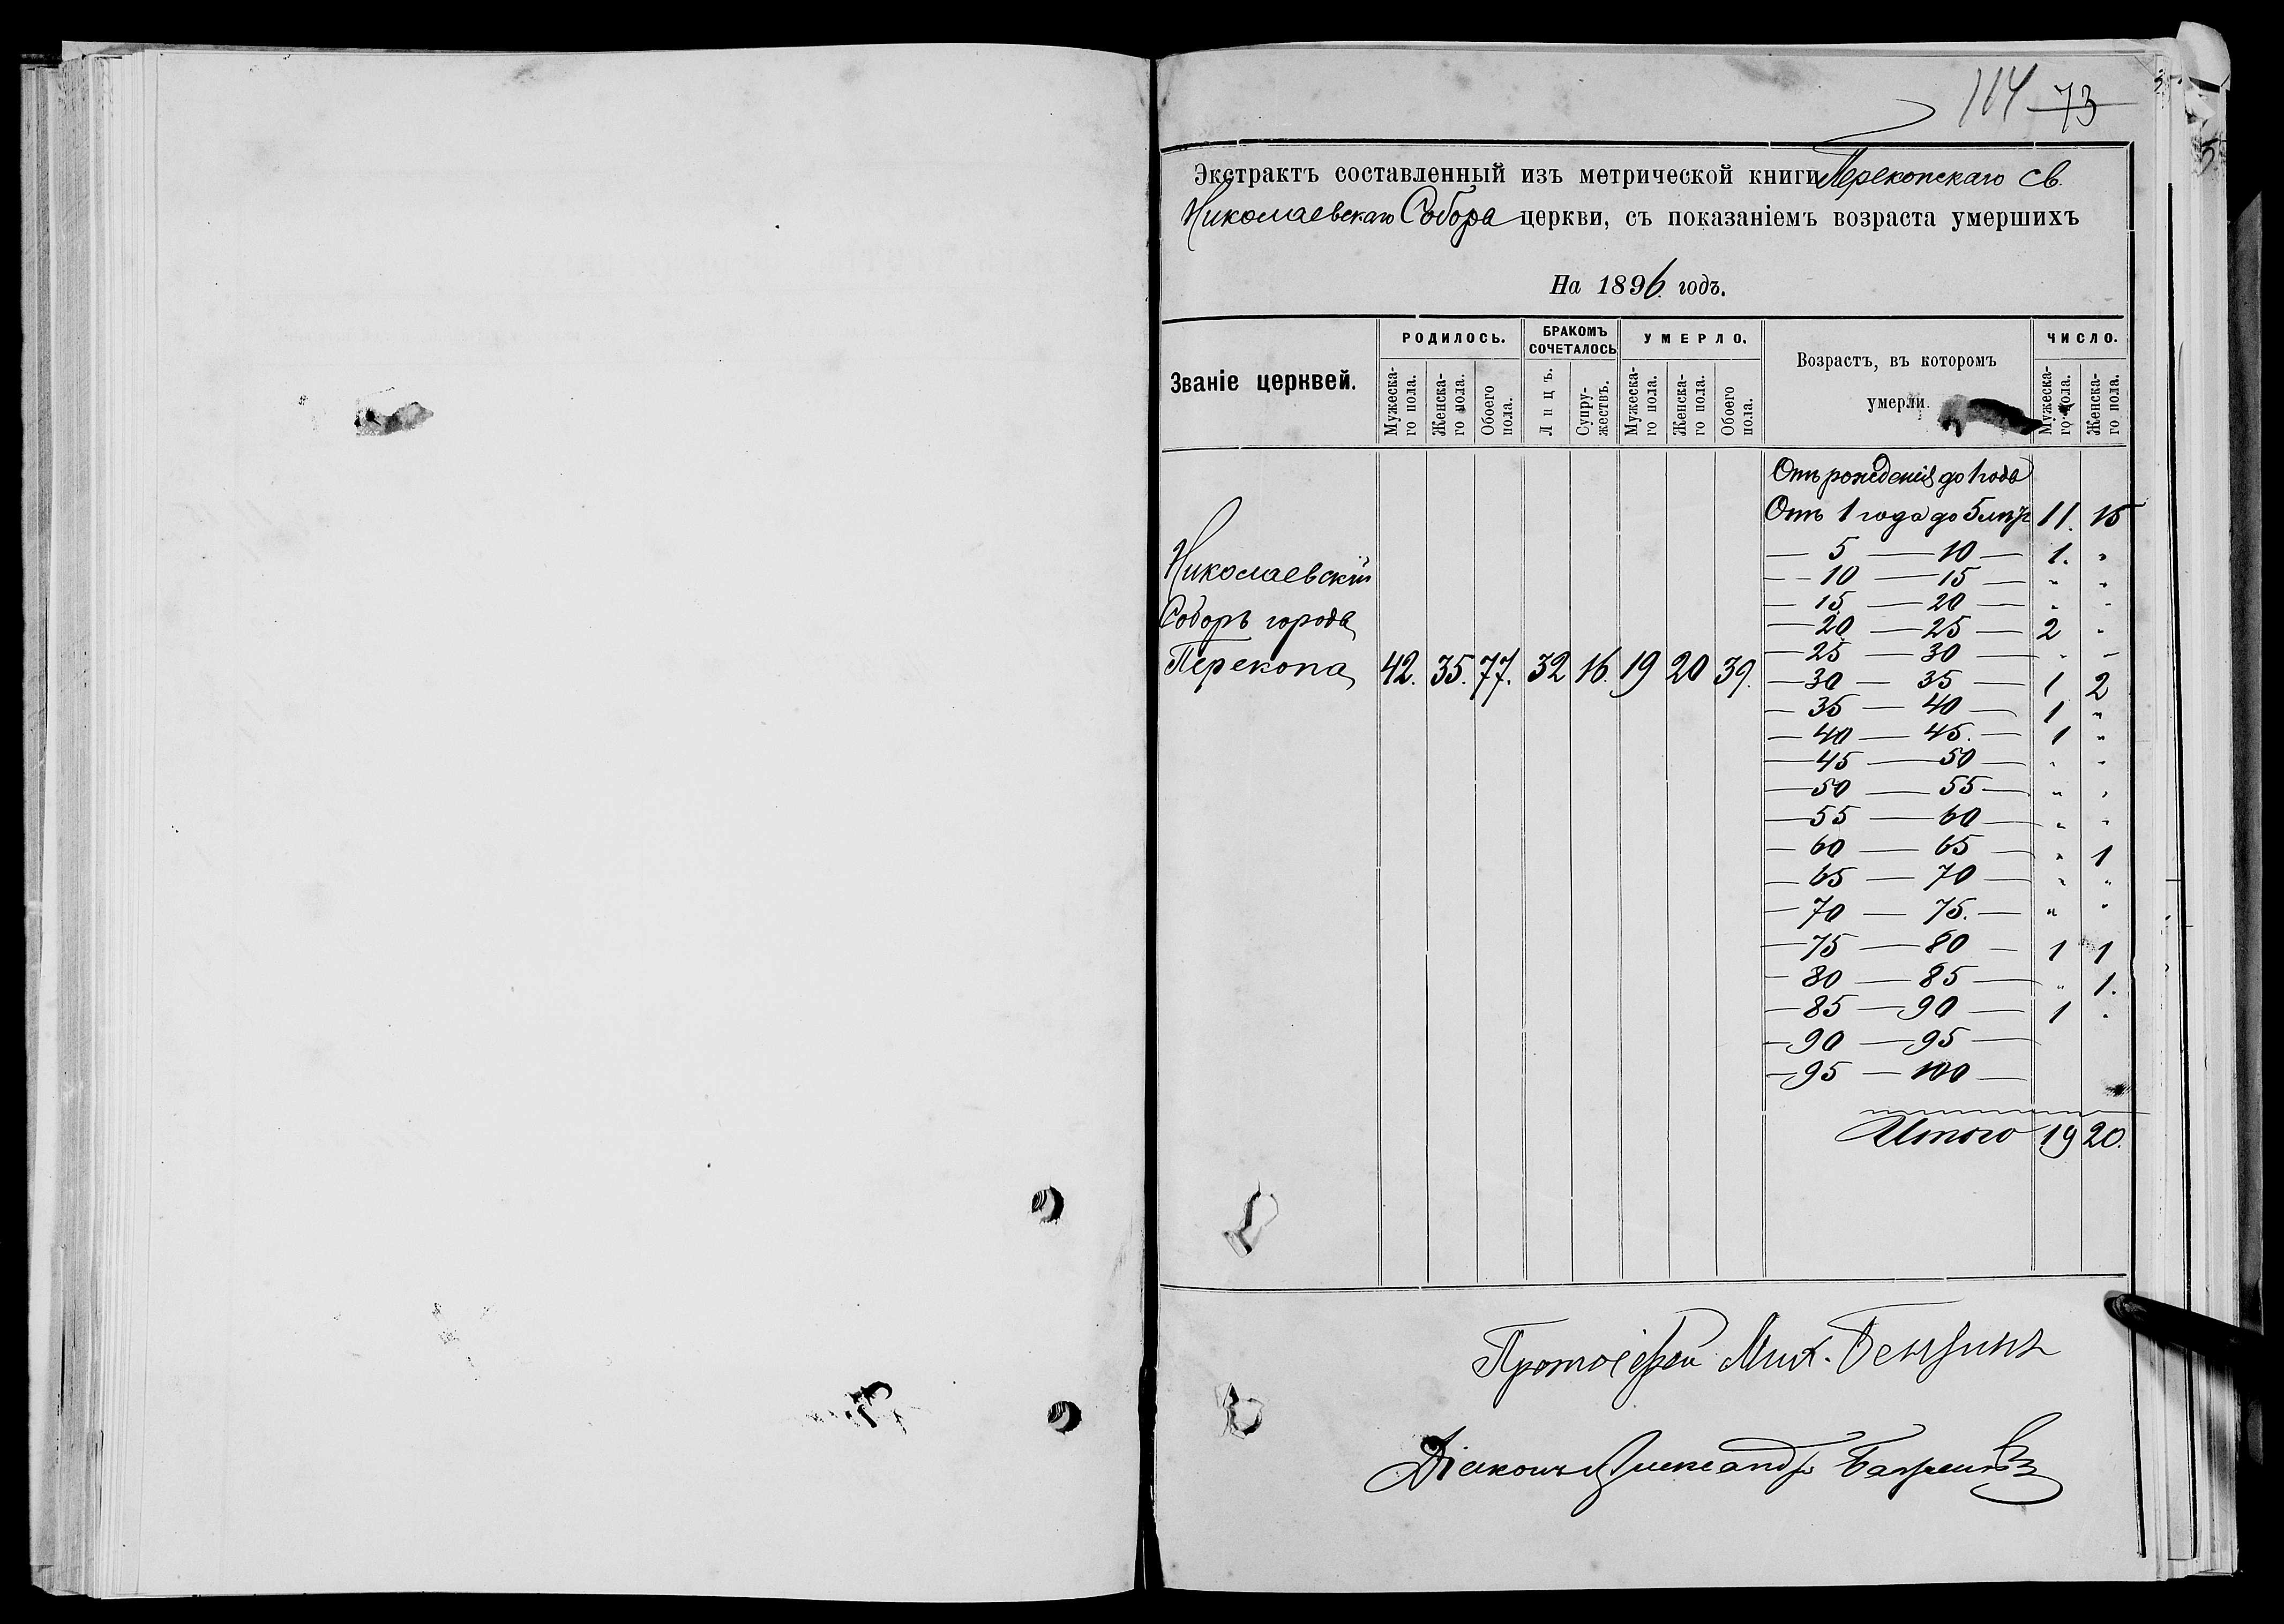 114 73
Экстрактъ составленный изъ метрической книги Перекопскаго св.
Николаевскаго Собора церкви, съ показаніемъ возраста умершихъ
На 1896 годъ.
Званіе церквей.
РОДИЛОСЬ.
БРАКОМЪ СОЧЕТАЛОСЬ
УМЕРЛО.
Возрастъ, въ которомъ умерли.
ЧИСЛО.
Мужеска-го пола.
Женска-го пола.
Обоего пола.
Лицъ.
Супру-жествъ.
Мужеска-го пола.
Женска-го пола.
Обоего пола.
Мужеска-го пола.
Женска-го пола.
Николаевскій
Соборъ города
Перекопа 42. 35. 77. 32 16. 19 20 39.
Отъ рожденія до 1 года
Отъ 1 года до 5 лѣтъ 11. 15
— 5 — 10 — 1. "
— 10 — 15 — " "
— 15 — 20 — " "
— 20 — 25 — 2 "
— 25 — 30 — " "
— 30 — 35 — 1 2
— 35 — 40 — 1 "
— 40 — 45. — 1 "
— 45 — 50 — " "
— 50 — 55 — " "
— 55 — 60 — " "
— 60 — 65 — " 1
— 65 — 70 — " "
— 70 — 75. — " "
— 75 — 80 — 1 1
— 80 — 85 — " 1.
— 85 — 90 — 1 "
— 90 — 95 —
— 95 — 100 —
Итого 19 20.
Протоіерей Мих.
Діаконъ Александръ